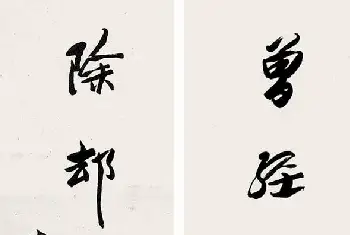 曾经
除却